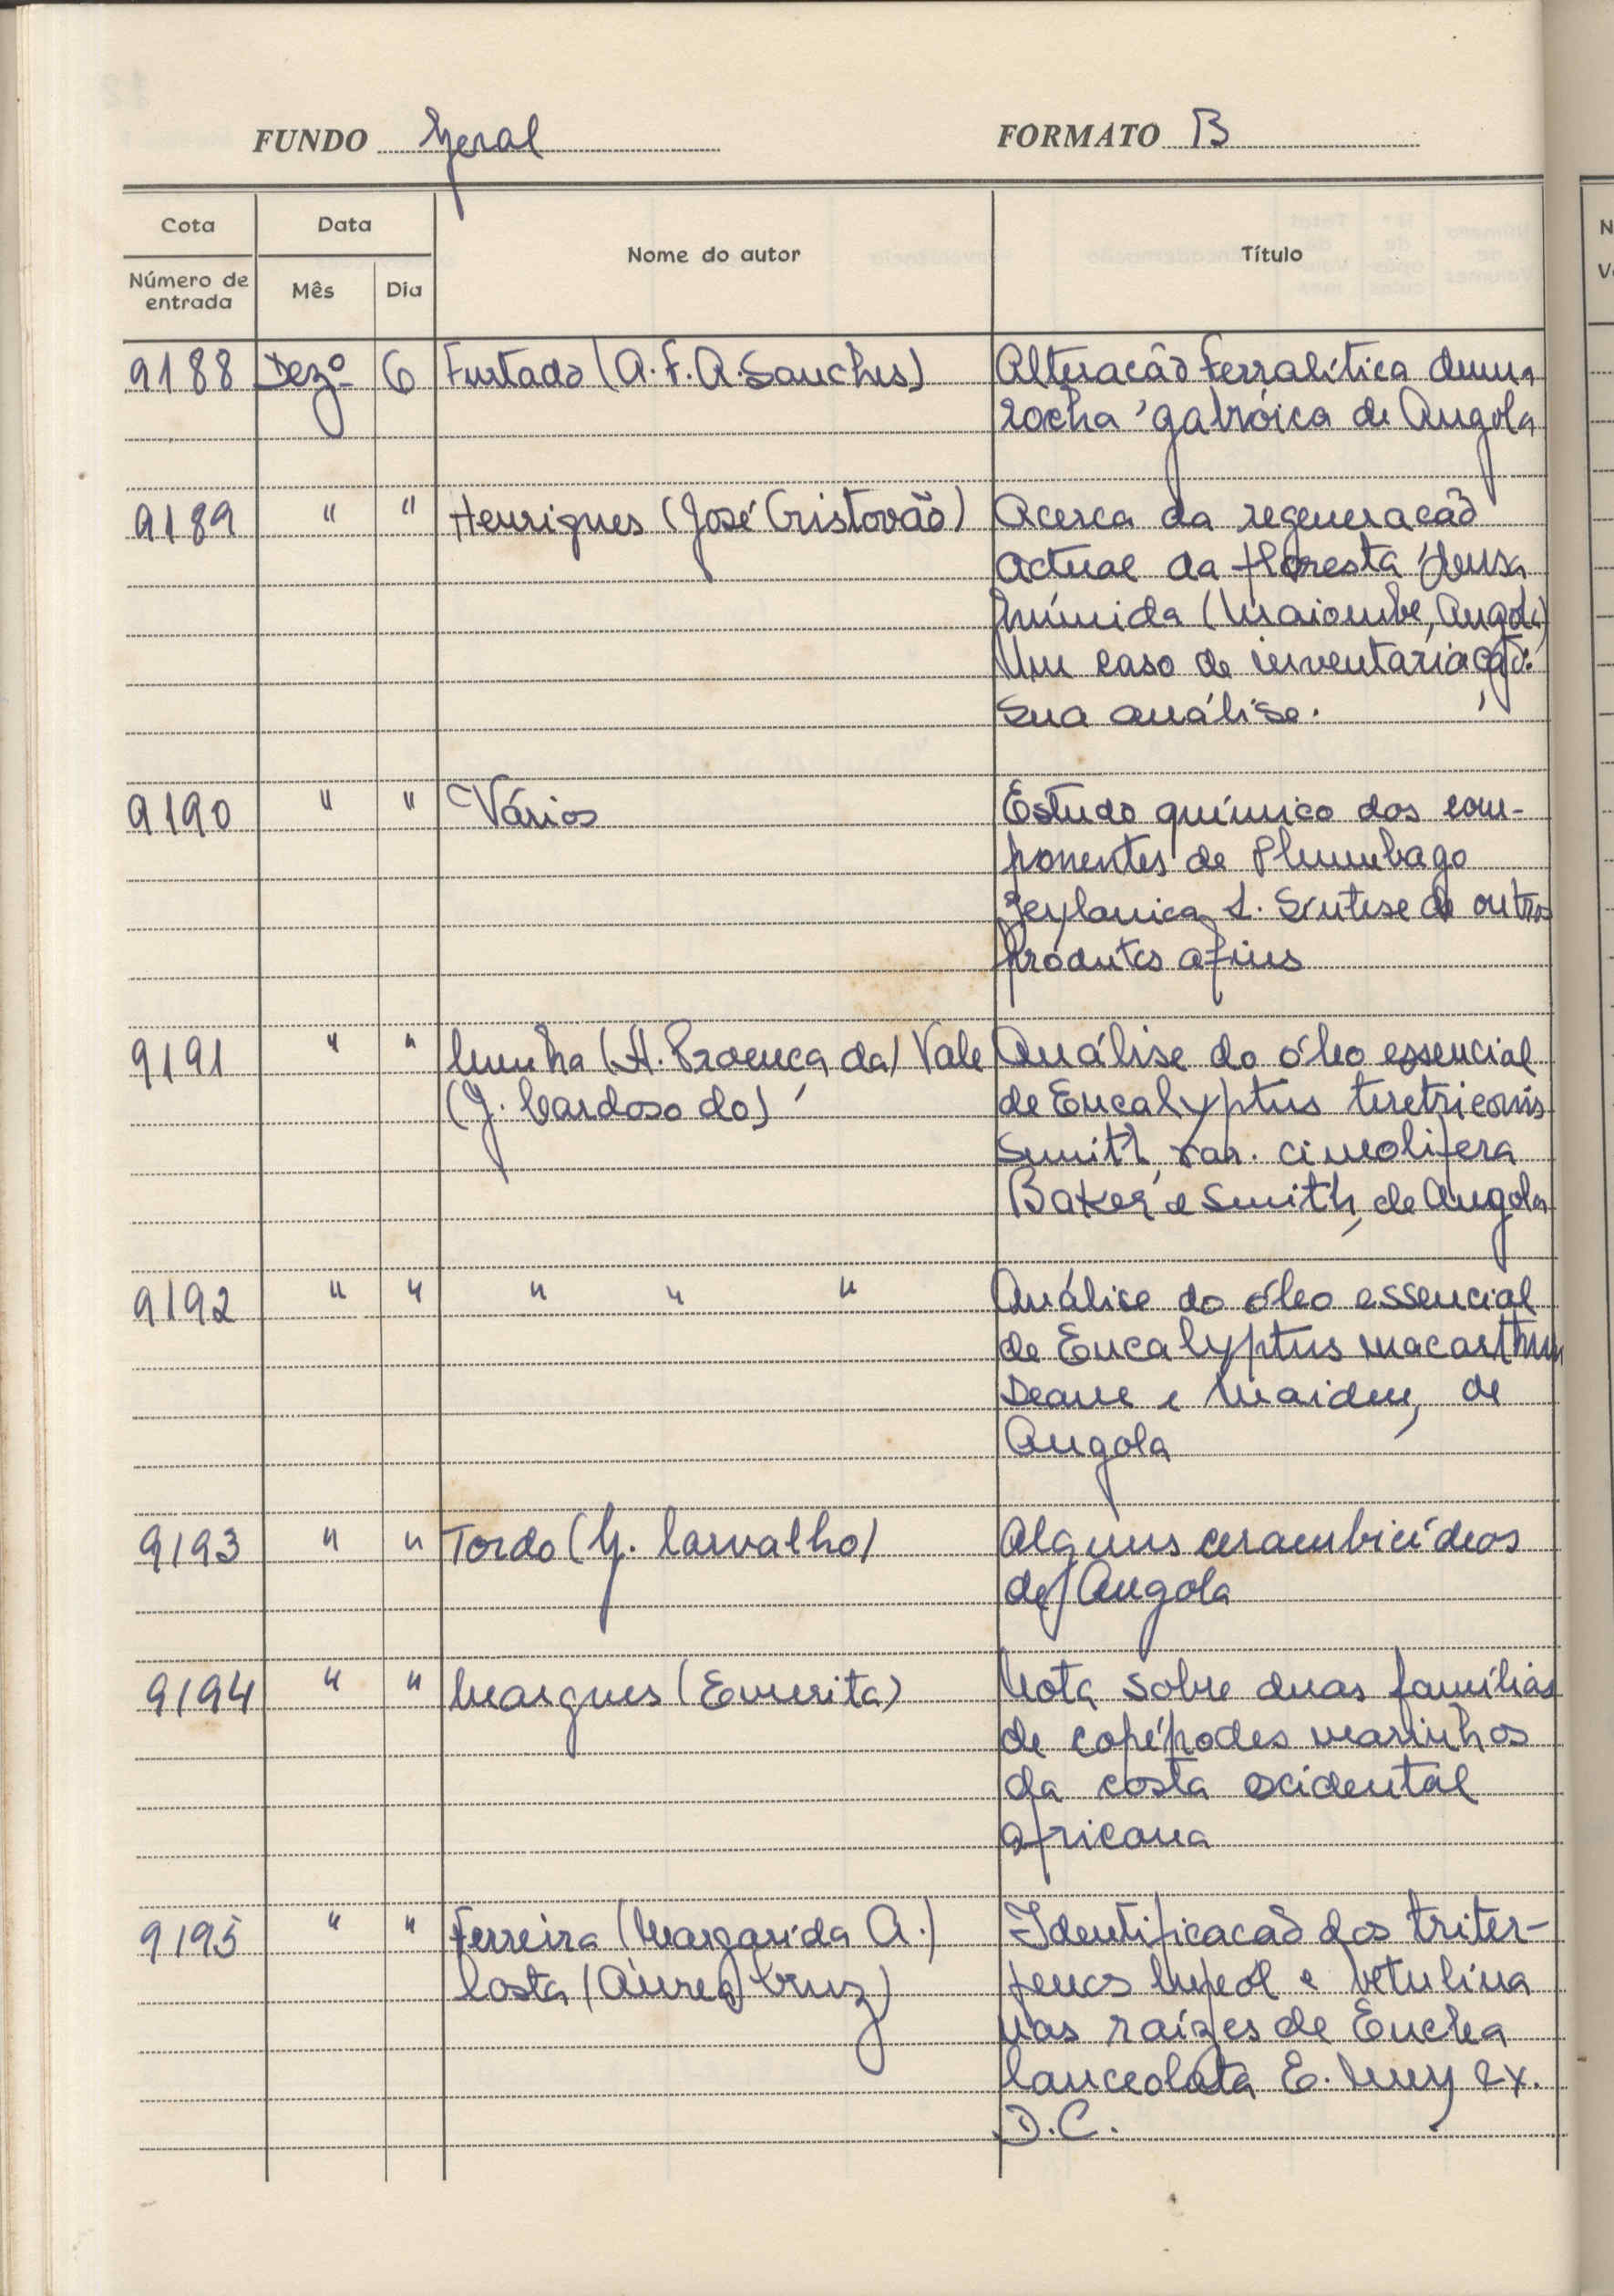 FUNDO Geral FORMATO B
Cota Data Nome do autor Título
Número de entrada Mês Dia
9188 Dezº 6 Furtado (A. F. A. Sanches) Alteração Ferralítica duma
rocha gabróica de Angola
9189 " " Henriques (José Cristovão) Acerca da regeneração
actual da floresta densa
húmida (Maiombe, Angola)
Um caso de inventariação:
sua análise.
9190 " " Vários Estudo químico dos com-
ponentes de Plumbago
Zeylanica L. Síntese de outros
produtos afins
9191 " " Cunha (A. Proença da) Vale Análise do óleo essencial
(J. Cardoso do) de Eucalyptus teretricornis
Smith, var. cineolifera
Baker e Smith, de Angola
9192 " " " " " Análise do óleo essencial
de Eucalyptus macarthuri
Deane e Maiden, de
Angola
9193 " " Tordo (G. Carvalho) Alguns cerambicídeos
de Angola
9194 " " Marques (Emerita) Nota sobre duas famílias
de copépodes marinhos
da costa ocidental
africana
9195 " " Ferreira (Margarida A.) Identificação dos triter-
Costa (Aurea Cruz) penos lupeol e betulina
nas raízes de Euclea
lanceolata E. Mey ex.
D.C.